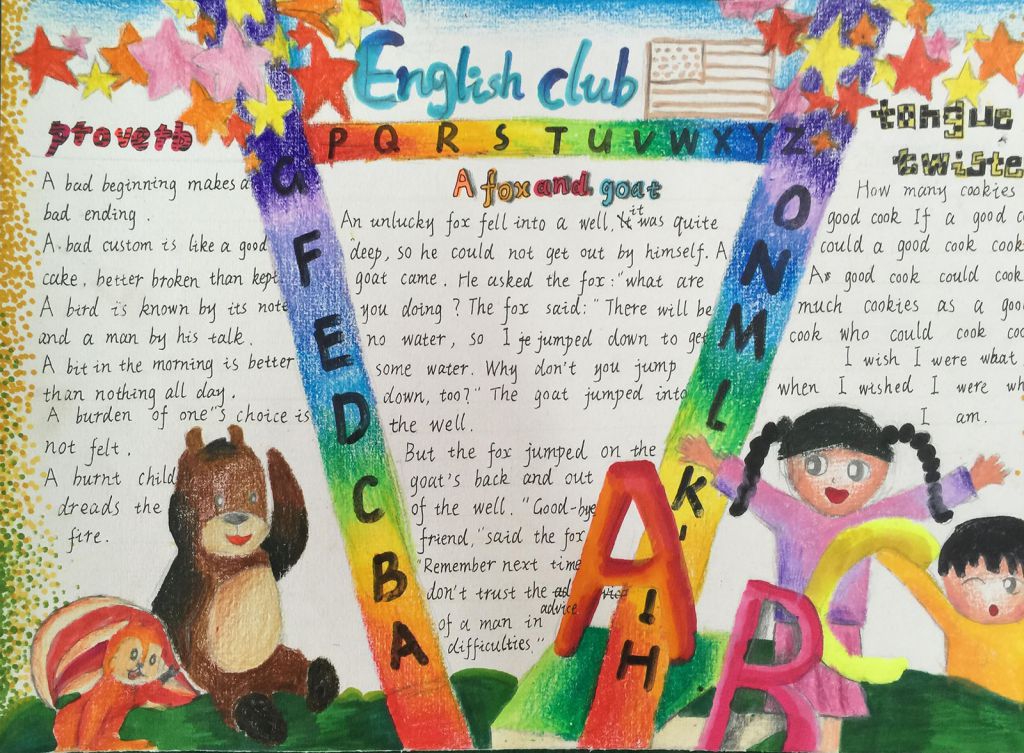 English club
proverb
A bad beginning makes a
bad ending.
A bad custom is like a good
cake, better broken than kept
A bird is known by its note
and a man by his talk.
A bit in the morning is better
than nothing all day.
A burden of one"s choice is
not felt.
A burnt child
dreads the
fire.
P Q R S T U V W X Y Z
G F E D C B A
A fox and goat
An unlucky fox fell into a well, it was quite
deep, so he could not get out by himself. A
goat came. He asked the fox: "what are
you doing? The fox said: "There will be
no water, so I je jumped down to get
some water. Why don't you jump
down, too?" The goat jumped into
the well.
But the fox jumped on the
goat's back and out
of the well. "Good-bye
friend," said the fox
"Remember next time
don't trust the
advice
of a man in
difficulties."
O N M L K J I H
tongue
twiste
How many cookies
good cook If a good
could a good cook cook
As good cook could cook
much cookies as a good
cook who could cook
I wish I were what
when I wished I were
I am.
A
R
C